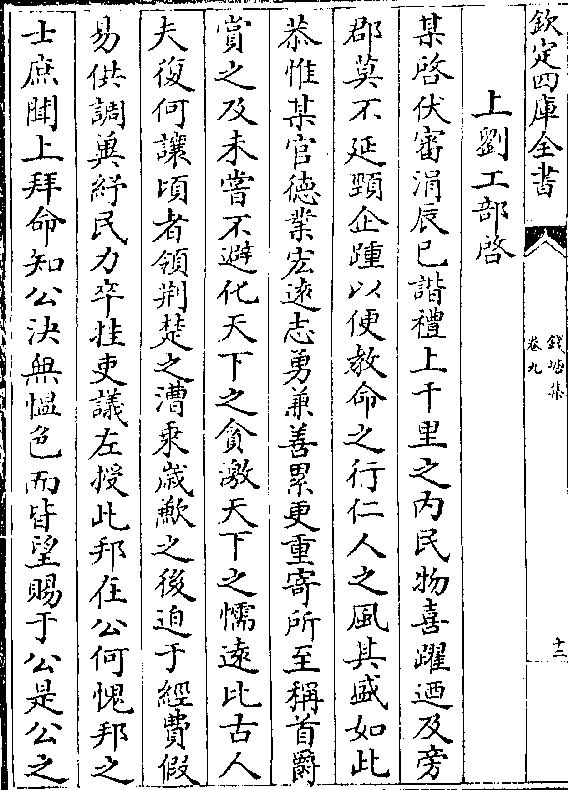 欽定四庫全書
錢塘集
卷九
十二
上劉工部啓
某啓伏審涓辰已諧禮上千里之内民物喜躍迺及旁
郡莫不延頸企踵以便教命之行仁人之風其盛如此
恭惟某官德業宏逺志勇兼善累更重寄所至稱首爵
賞之及未嘗不避化天下之貪激天下之懦逺比古人
夫復何讓頃者領荆楚之漕乘嵗歉之後迫于經費假
易供調冀紓民力卒挂吏議左授此邦在公何愧邦之
士庶聞上拜命知公決無慍色而皆望賜于公是公之